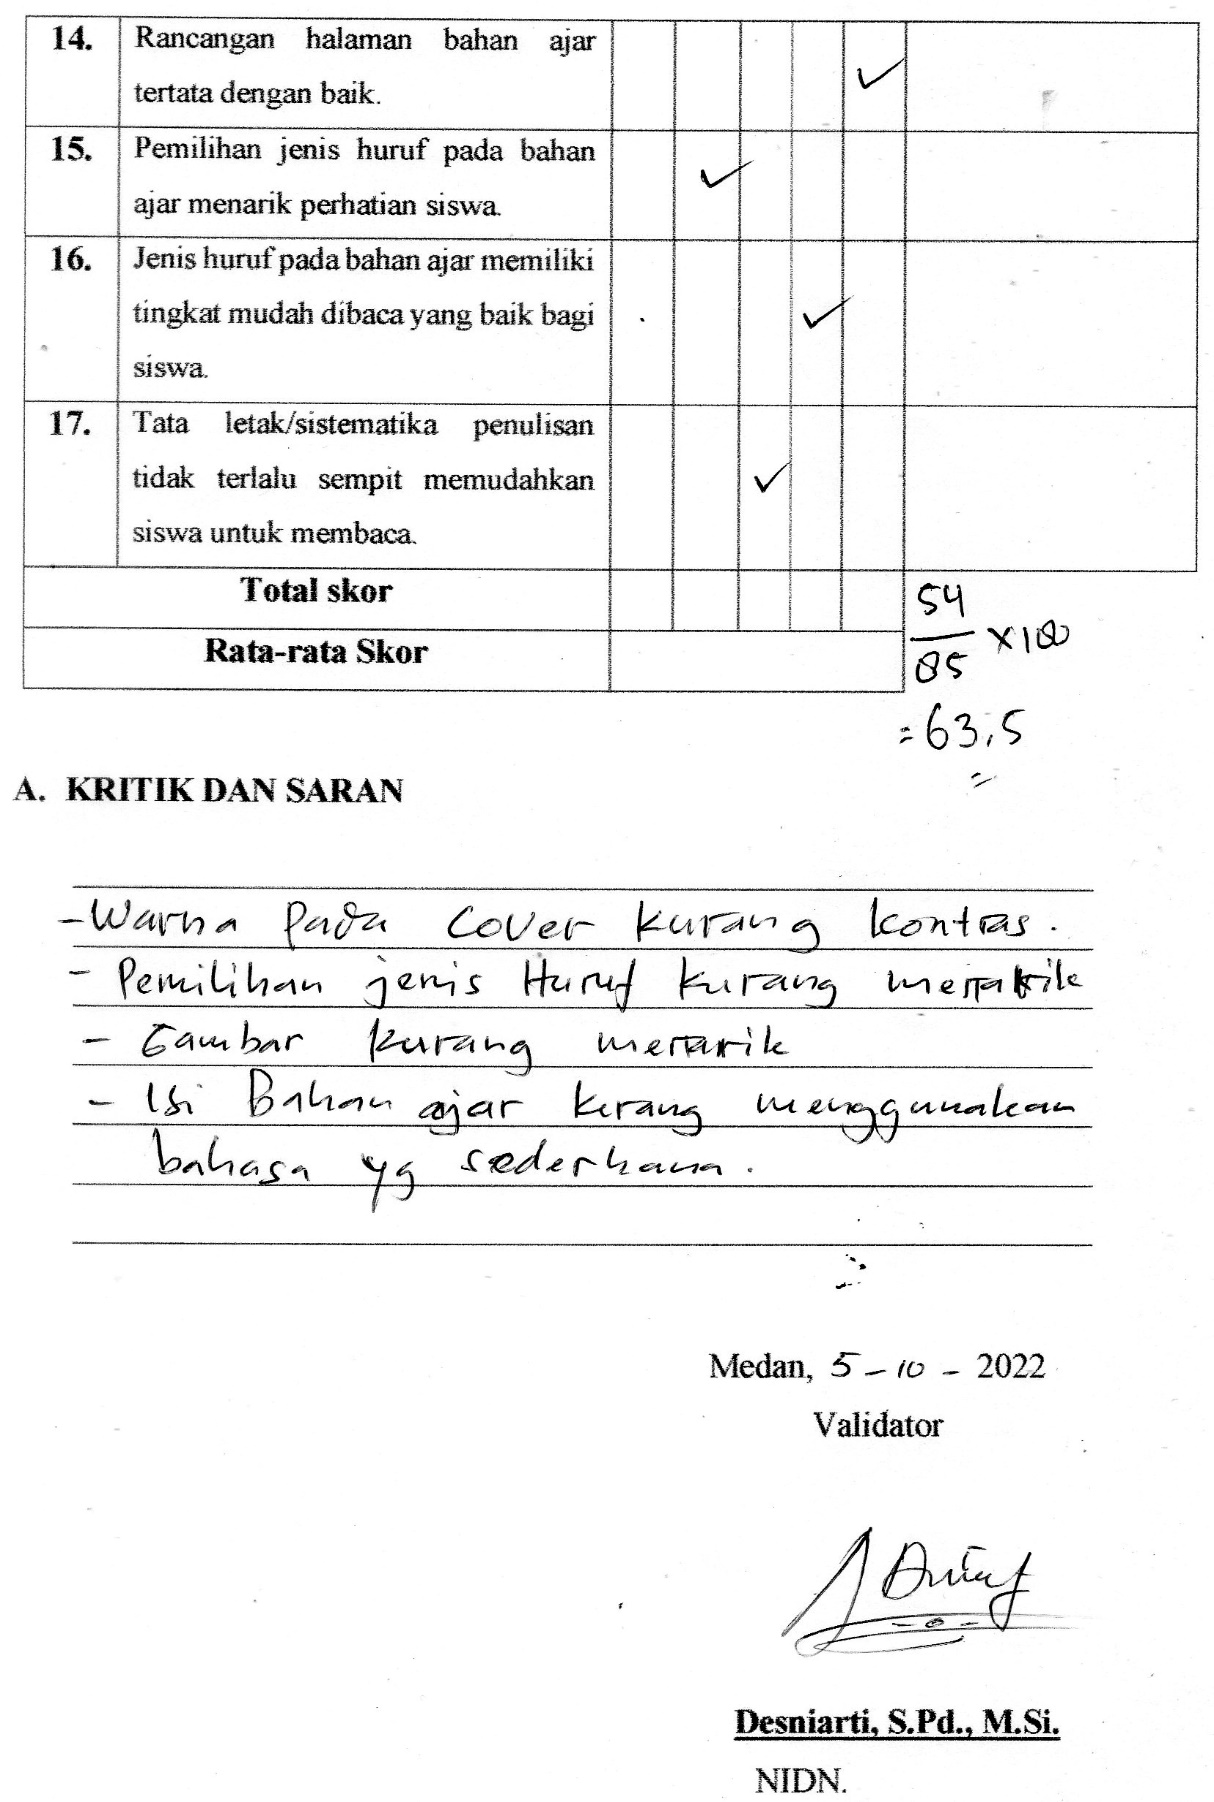 14. Rancangan halaman bahan ajar
tertata dengan baik.
✓
15. Pemilihan jenis huruf pada bahan
ajar menarik perhatian siswa.
✓
16. Jenis huruf pada bahan ajar memiliki
tingkat mudah dibaca yang baik bagi
siswa.
✓
17. Tata letak/sistematika penulisan
tidak terlalu sempit memudahkan
siswa untuk membaca.
✓
Total skor
Rata-rata Skor
54
85 ×100
= 63,5
A. KRITIK DAN SARAN
- Warna pada cover kurang kontras.
- Pemilihan jenis Huruf kurang menarik
- Gambar kurang menarik
- Isi Bahan ajar kurang menggunakan
bahasa yg sederhana.
Medan, 5 - 10 - 2022
Validator
Desniarti, S.Pd., M.Si.
NIDN.